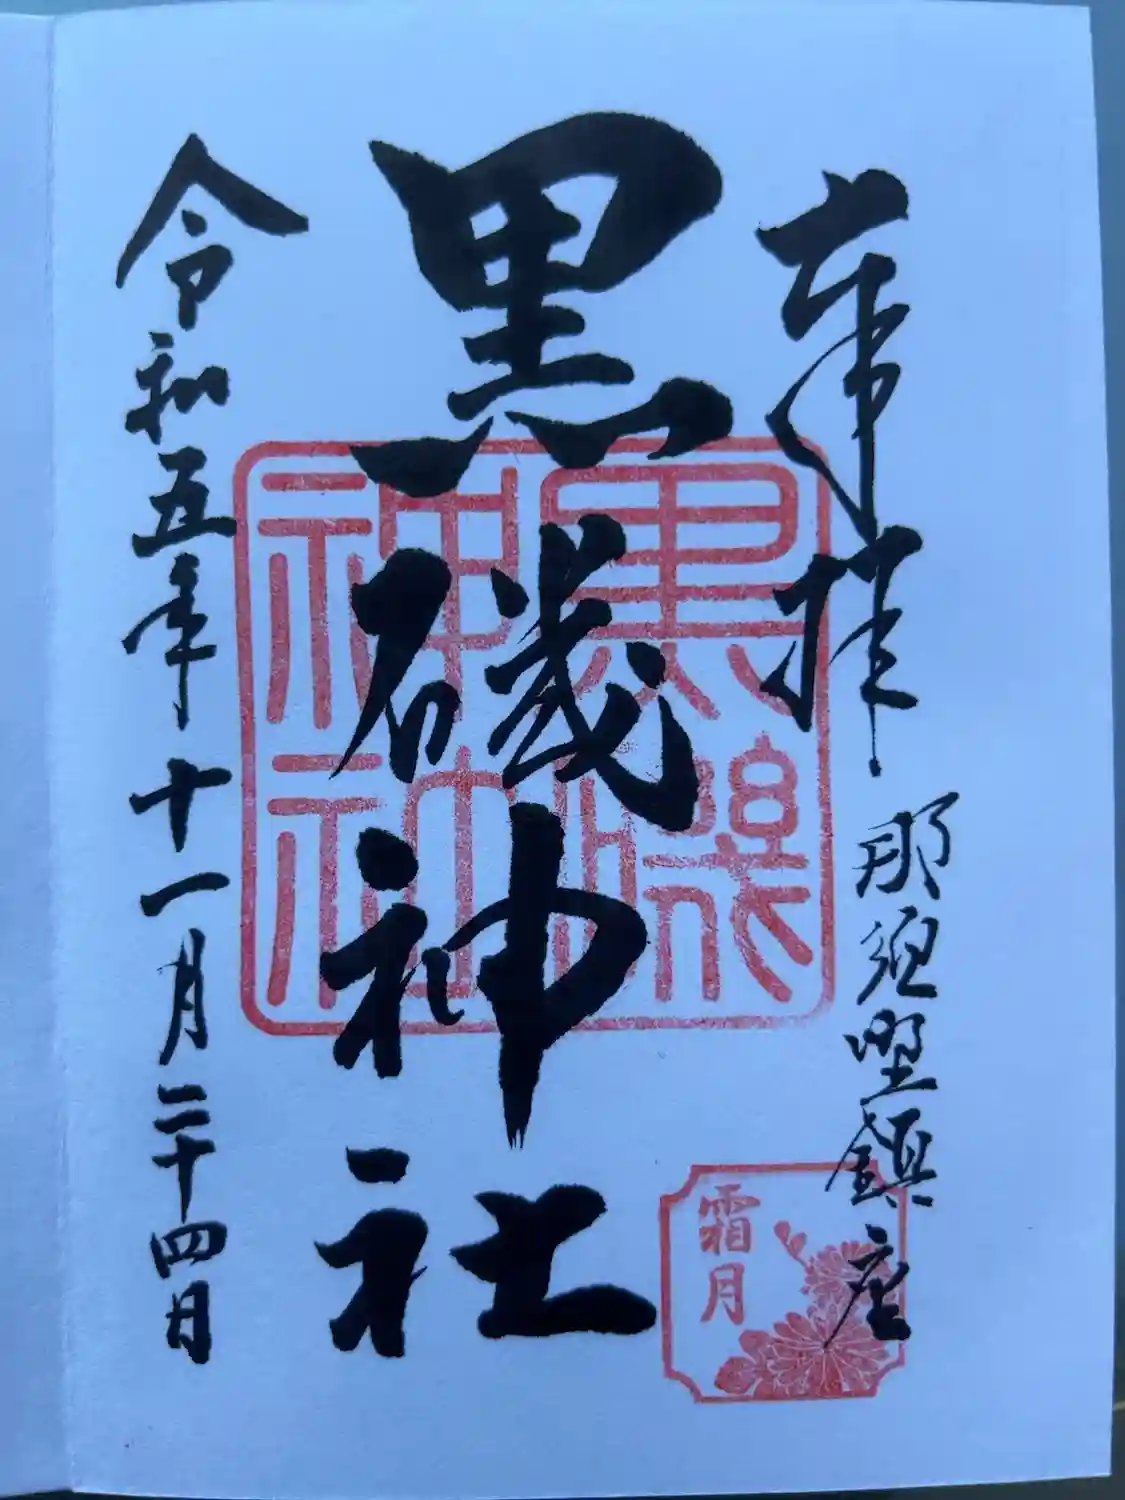 奉拝
那須野鎮座
黒磯神社
令和五年十一月二十四日
黒磯神社
霜月